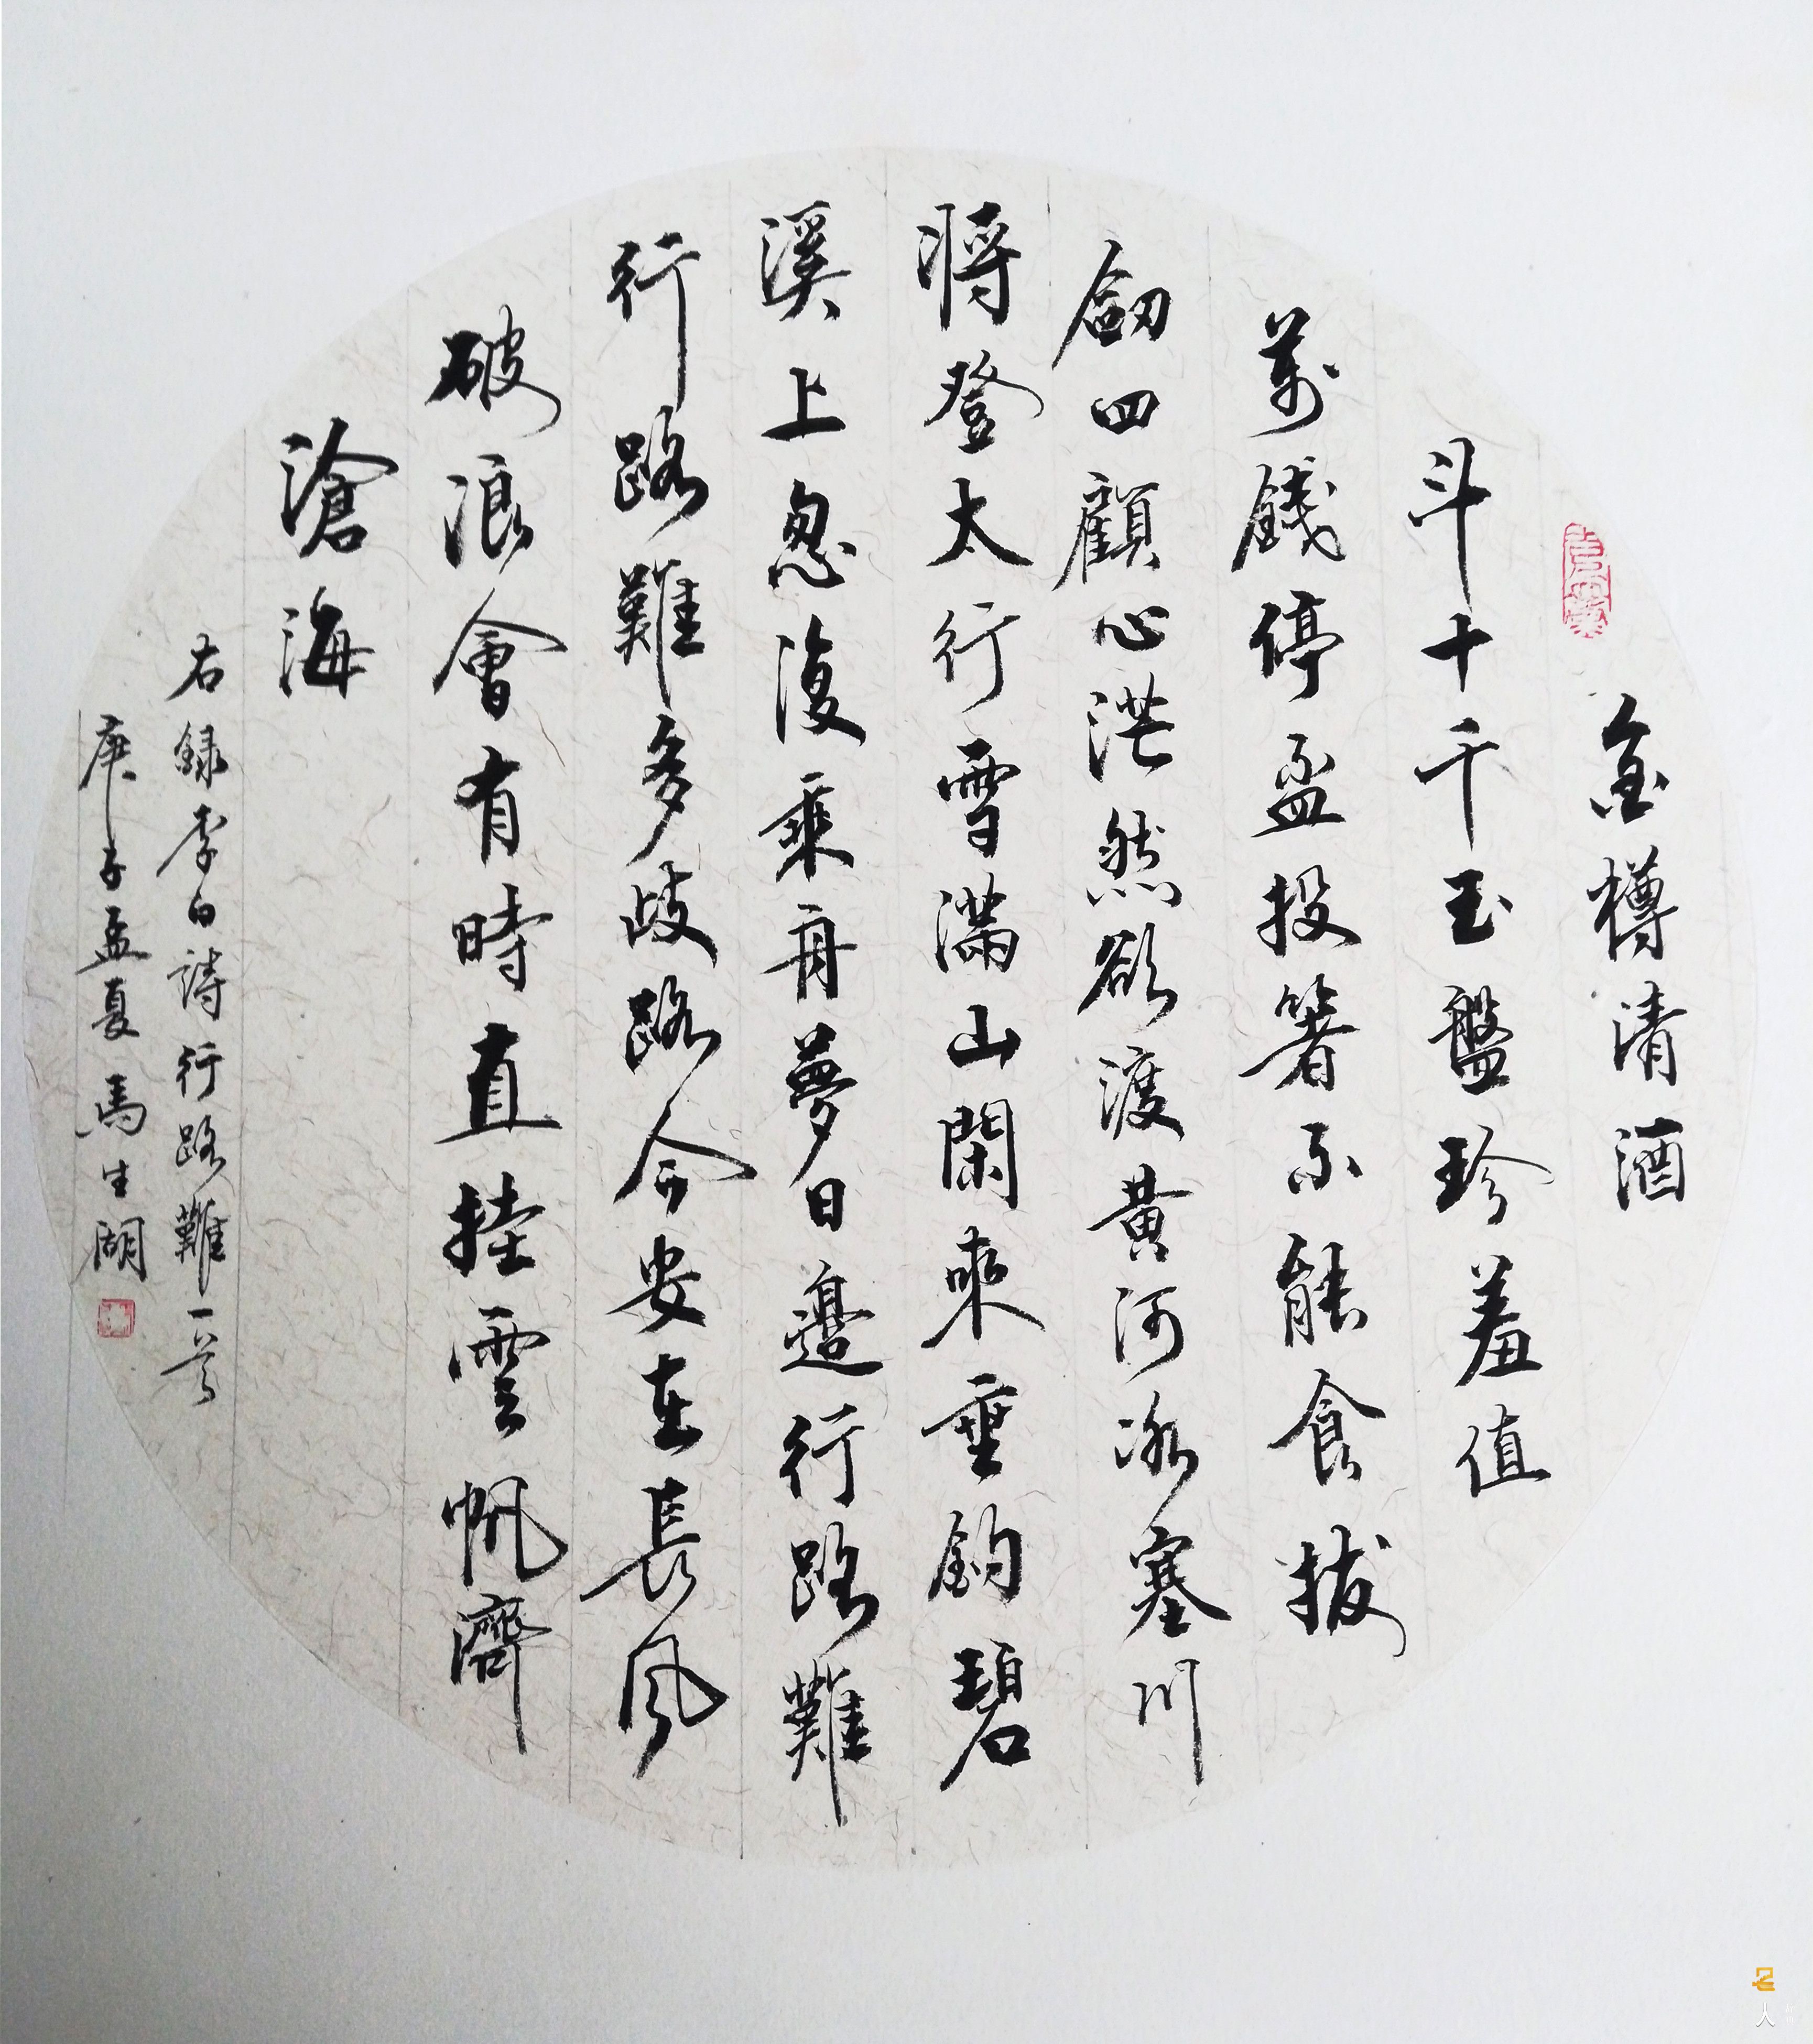 金樽清酒
斗十千玉盤珍羞值
萬錢停盃投箸不能食拔
劒四顧心茫然欲渡黄河冰塞川
將登太行雪滿山閑來垂釣碧
溪上忽復乘舟夢日邊行路難
行路難多歧路今安在長風
破浪會有時直挂雲帆濟
滄海
右録李白詩行路難一首
庚子孟夏馬生湖